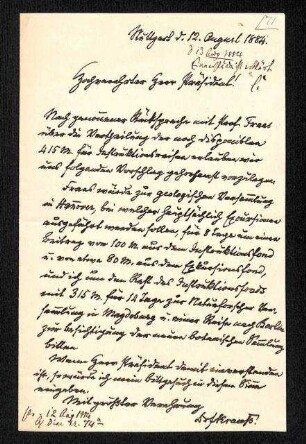 Stuttgart d. 12. August 1884.
Hochverehrter Herr Präsident!
Nach genommener Rücksprache mit Prof. Fraas
über die Vertheilung der noch disponiblen
415 M. für Instruktionsreisen erlauben wir
uns folgenden Vorschlag gehorsamst vorzulegen.
Fraas würde zur geologischen Versammlung
in Hannover, bei welcher hauptsächlich Exkursionen
ausgeführt werden sollen, für 8 Tage um einen
Beitrag von 100 M. aus dem Instruktionsfond
und von etwa 80 M. aus dem Exkursionsfond,
und ich um den Rest des Instruktionsfonds
mit 315 M. für 14 Tage zur Naturforscher Ver-
samlung in Magdeburg u. einer Reise nach Berlin
zur Besichtigung der neuen botanischen Samlung
bitten.
Wenn Herr Präsident damit einverstanden
ist, so würde ich mein Bittgesuch in diesem Sinne
eingeben.
Mit größter Verehrung
Krauss.
12 Aug 1884